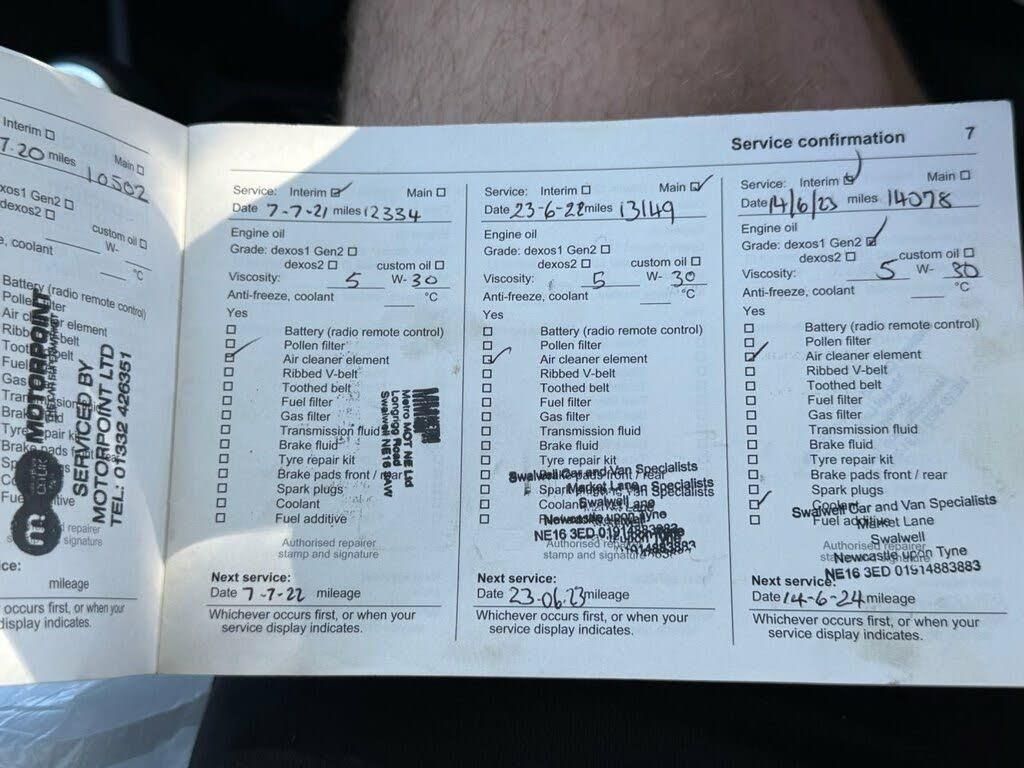 Service confirmation 7
Interim
Main
7.20 miles 10502
xos1 Gen2
dexos2
custom oil
W-
e, coolant
°C
Battery (radio remote control)
Pollen filter
Air cleaner element
Ribbed V-belt
Toothed belt
Fuel
Gas
Brake
Tyre repair kit
Brake pads front
MOTORPOINT
SERVICED BY
MOTORPOINT LTD
TEL: 01332 426351
d repairer
signature
ce:
mileage
occurs first, or when your
display indicates.
Service: Interim Main
Date 7-7-21 miles 12334
Engine oil
Grade: dexos1 Gen2
dexos2 custom oil
Viscosity: 5 W-30
Anti-freeze, coolant °C
Yes
Battery (radio remote control)
Pollen filter
Air cleaner element
Ribbed V-belt
Toothed belt
Fuel filter
Gas filter
Transmission fluid
Brake fluid
Tyre repair kit
Brake pads front / rear
Spark plugs
Coolant
Fuel additive
Metro MOT NE Ltd
Longrigg Road
Swalwell NE16
Authorised repairer
stamp and signature
Next service:
Date 7-7-22 mileage
Whichever occurs first, or when your
service display indicates.
Service: Interim Main
Date 23-6-22 miles 13149
Engine oil
Grade: dexos1 Gen2
dexos2 custom oil
Viscosity: 5 W-30
Anti-freeze, coolant °C
Yes
Battery (radio remote control)
Pollen filter
Air cleaner element
Ribbed V-belt
Toothed belt
Fuel filter
Gas filter
Transmission fluid
Brake fluid
Tyre repair kit
Brake pads front / rear
Spark plugs
Coolant
Swalwell Car and Van Specialists
Market Lane
Swalwell
Newcastle upon Tyne
NE16 3ED 01914883883
Authorised repairer
stamp and signature
Next service:
Date 23.06.23 mileage
Whichever occurs first, or when your
service display indicates.
Service: Interim Main
Date 14/6/23 miles 14078
Engine oil
Grade: dexos1 Gen2
dexos2 custom oil
Viscosity: 5 W- 30
Anti-freeze, coolant °C
Yes
Battery (radio remote control)
Pollen filter
Air cleaner element
Ribbed V-belt
Toothed belt
Fuel filter
Gas filter
Transmission fluid
Brake fluid
Tyre repair kit
Brake pads front / rear
Spark plugs
Coolant
Fuel additive
Swalwell Car and Van Specialists
Market Lane
Swalwell
Newcastle upon Tyne
NE16 3ED 01914883883
Authorised repairer
Next service:
Date 14-6-24 mileage
Whichever occurs first, or when your
service display indicates.